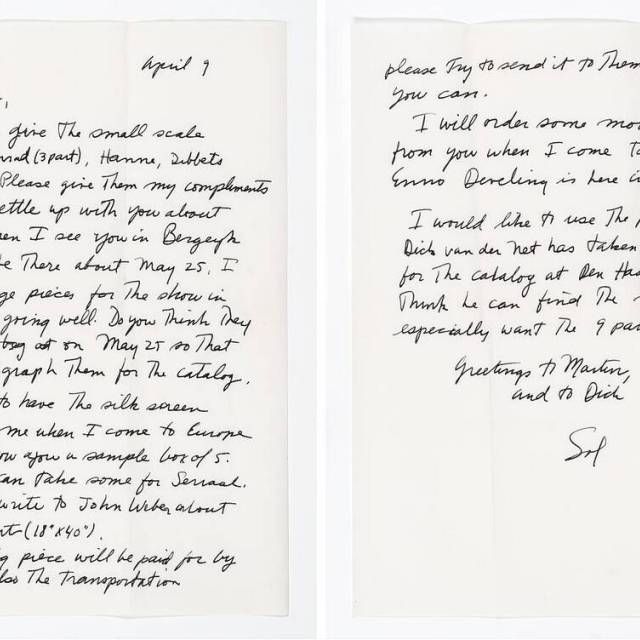 April 9
give The small scale
(3 part), Hanne, Dibbets
Please give Them my compliments
ettle up with you about
en I see you in Bergeyk
e There about May 25. I
ge pieces for The show in
going well. Do you Think They
on May 25 so That
graph Them for The catalog.
to have The silk screen
me when I come to Europe
ow you a sample box of 5.
an Take some for Seriaal.
write to John Weber about
t (18" x 40").
g piece will be paid for by
lso The Transportation
please Try to send it to Them
you can.
I will order some mo
from you when I come T
Enno Develing is here i
I would like to use The p
Dick van der Net has Taken
for The catalog at Den Haa
Think he can find The
especially want The 9 par
Greetings to Martin,
and to Dick
Sol